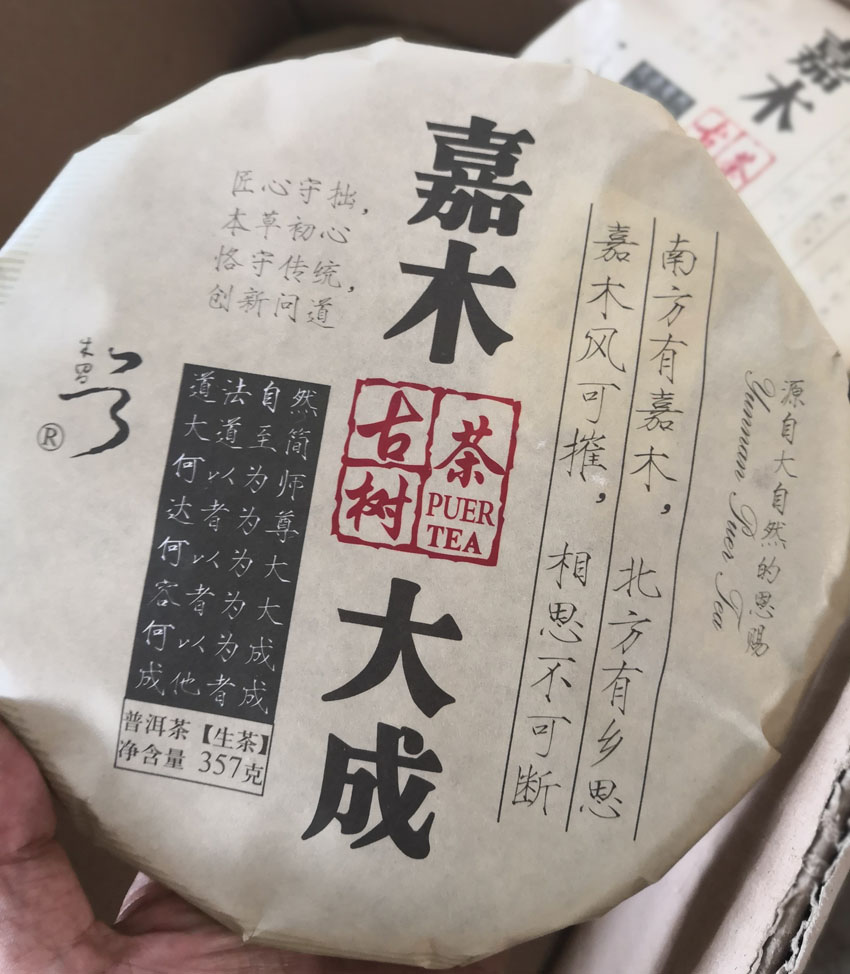 嘉木
古树
茶
PUER
TEA
大成
匠心守拙，
本草初心
恪守传统，
创新问道
®
道法自然
大道至简
何以为师
达者为尊
何以为大
容者为大
何以为成
成他者成
普洱茶【生茶】
净含量 357克
南方有嘉木，北方有乡思
嘉木风可摧，相思不可断
源自大自然的恩赐
Yunnan Puer Tea
嘉木
古茶